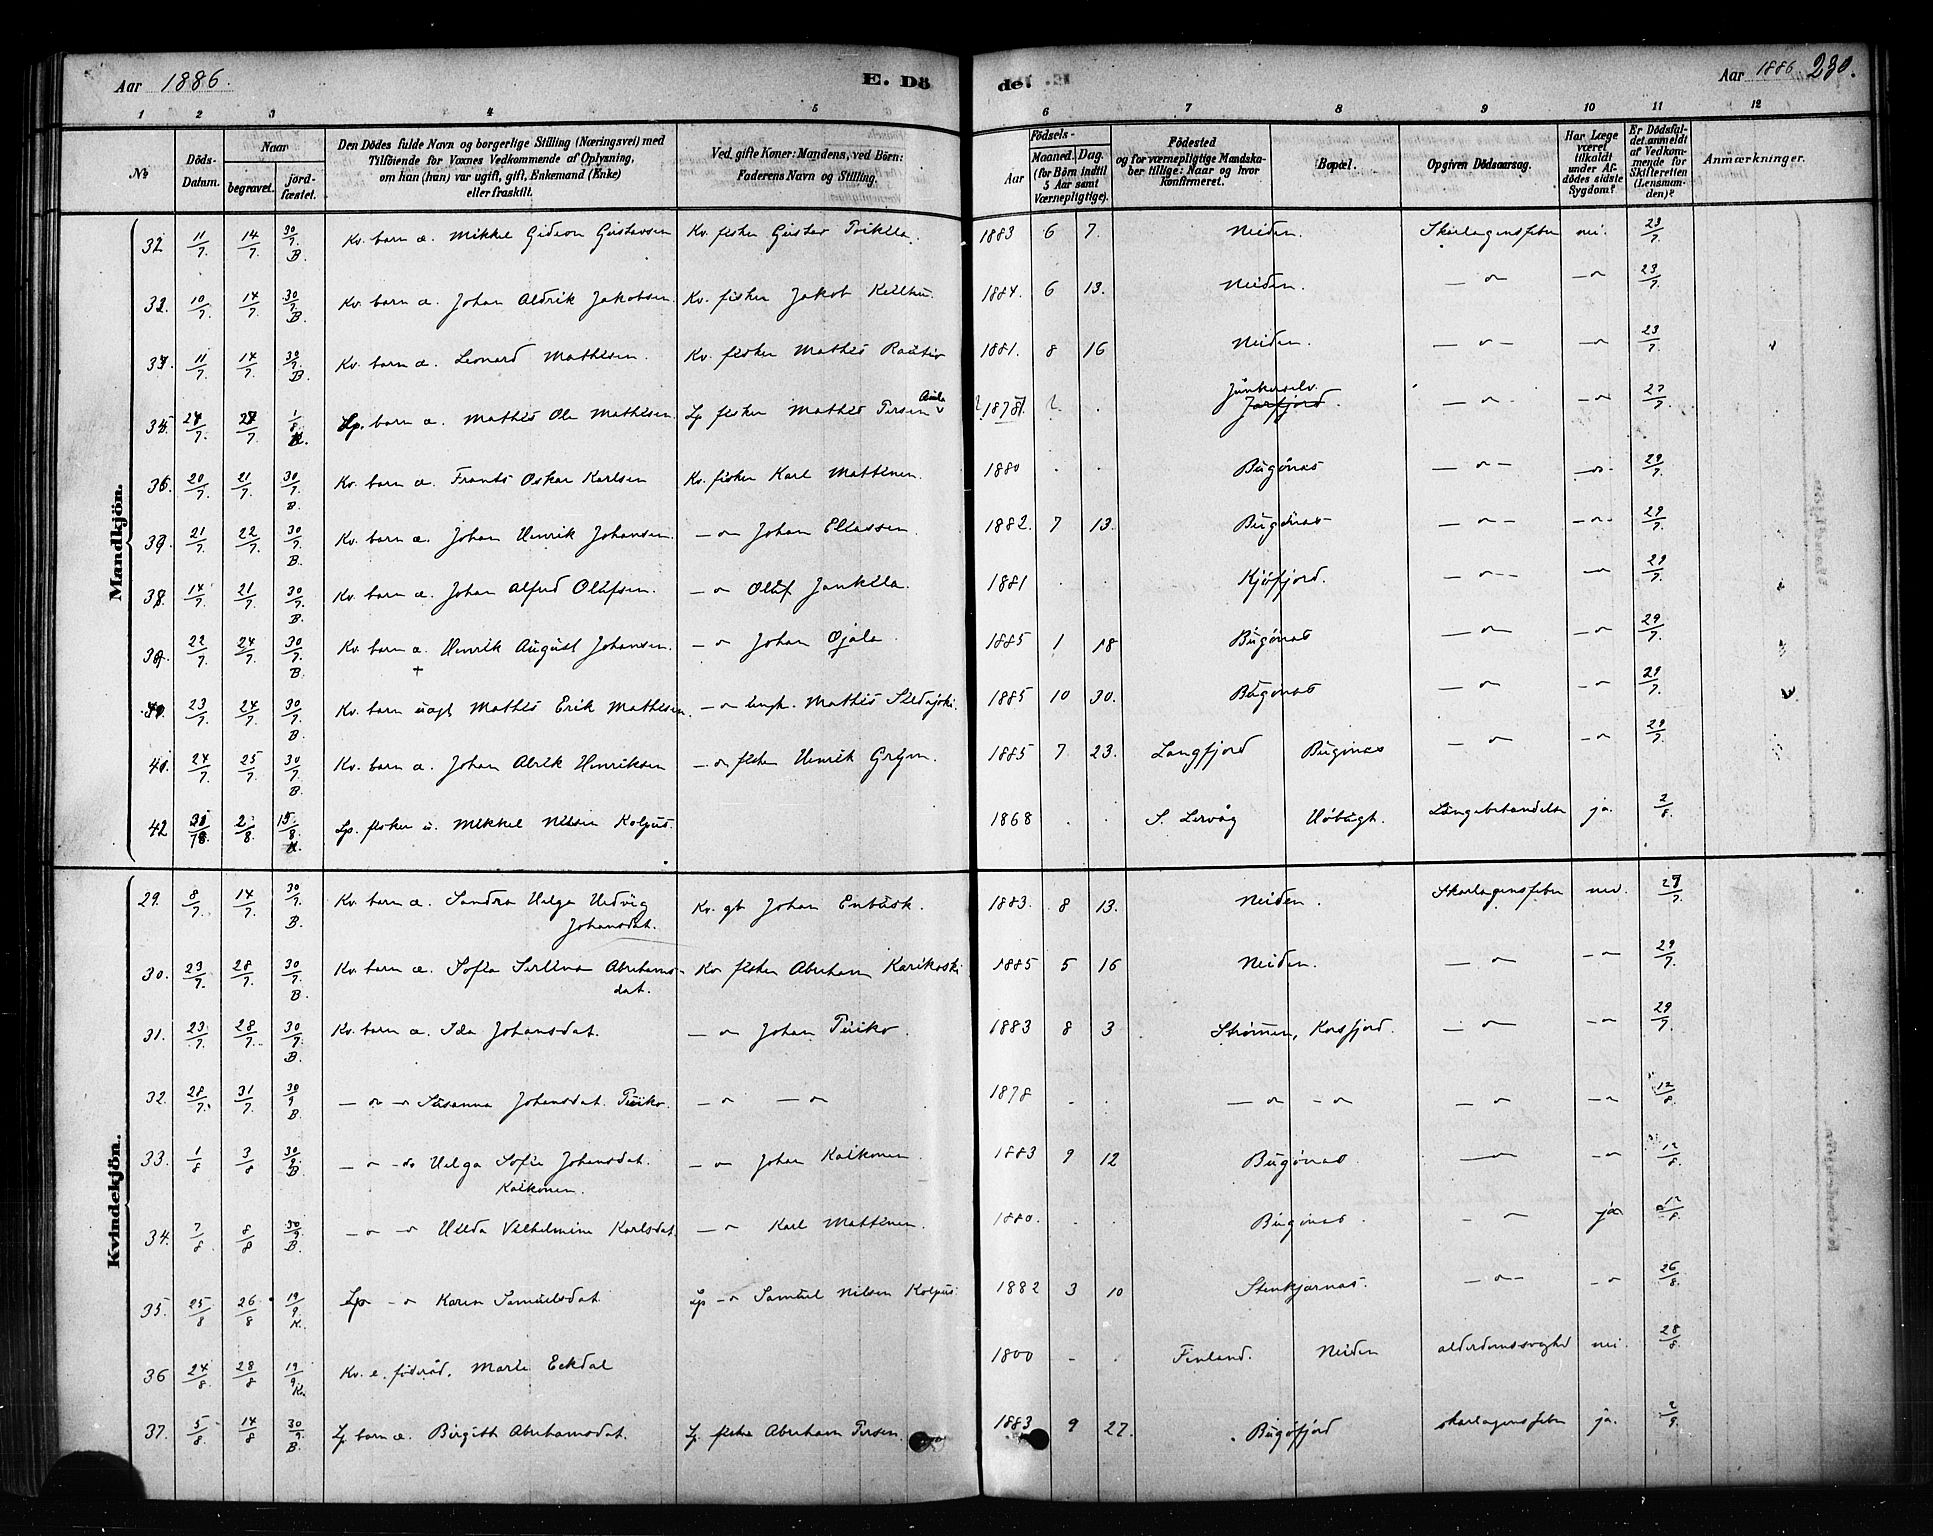 Aar 1886. E. Dö de. Aar 1886 230.
1 2 3 4 5 6 7 8 9 10 11 12
No
Döds-Datum.
Naar
begravet.
jordfæstet.
Den Dödes fulde Navn og borgerlige Stilling (Næringsvei) med
Tilföiende for Voxnes Vedkommende af Oplysning,
om han (hun) var ugift, gift, Enkemand (Enke)
eller fraskilt.
Ved gifte Koner: Mandens, ved Börn:
Faderens Navn og Stilling.
Födsels-
Aar
Maaned. Dag.
(for Börn indtil
5 Aar samt
Værnepligtige).
Födested
og for værnepligtige Mandska-
ber tillige: Naar og hvor
Konfirmeret.
Bopæl.
Opgiven Dödsaarsag.
Har Læge
været
tilkaldt
under Af-
dödes sidste
Sygdom?
Er Dödsfal-
det anmeldt
af Vedkom-
mende for
Skifteretten
(Lensman-
den)?
Anmærkninger.
Mandkjön.
32. 11/7. 14/7. 30/7. B. Kv. barn æ. Mikkel Gideon Gustavsen Kv. fisker Gustav 1883 6 7. Neiden. Skarlagensfeber nei. 23/7.
33. 10/7. 14/7. 30/7. B. Kv. barn æ. Johan Aldrik Jakobsen. Kv. fisker Jakob 1884. 6 13. Neiden. — „ — — „ 23/7.
34. 11/7. 14/7. 30/7. B. Kv. barn æ. Leonard Mathisen. Kv. fisker Mathis Rautio 1881. 8 16 Neiden. — „ — — „ 23/7.
35. 24/7. 28/7. 1/8. K. Lp. barn æ. Mathis Ole Mathisen. Lp fisker Mathis Persen Junkerselv. Jarfjord. — „ — — „ 27/7.
36. 20/7. 21/7. 30/7. B. Kv. barn æ. Frants Oskar Karlsen Kv. fisker Karl Mattinen. 1880 . . Bugönæs — „ — — „ 29/7.
37. 21/7. 22/7. 30/7. B. Kv. barn æ. Johan Henrik Johansen. — „ Johan Eliassen. 1882. 7 13. Bugönæs — „ — — „ 29/7.
38. 14/7. 21/7. 30/7. B. Kv. barn æ. Johan Alfred Olufsen. — „ Oluf Jankila. 1881 . . Kjöfjord. — „ — — „ 29/7.
39. 22/7. 24/7. 30/7. B. Kv. barn æ. Henrik August Johansen. — „ Johan Ojala. 1885 1 18 Bugönæs — „ — „ 29/7.
40. 23/7. 24/7. 30/7. B. Kv. barn uægt Mathis Erik Mathisen. — „ ungk. Mathis 1885 10 30. Bugönæs — „ — „ 29/7.
41. 24/7. 25/7. 30/7. B. Kv. barn æ. Johan Henriksen — „ fisker Henrik 1885 7 23. Langfjord Bugönæs — „ — „ 29/7.
42 31/7 2/8. 15/8. K. Lp. fisker u. Mikkel Nilsen Kolpus. 1868 . . S. Lervåg Höbugt. Lungebetændelse ja. 2/8.
Kvindekjön.
29. 8/7. 14/7. 30/7. B. Kv. barn æ. Sandra Helga Hedvig
Johansdat. Kv. gb Johan Enbusk. 1883. 8 13. Neiden. Skarlagensfeber nei. 29/7.
30. 23/7. 28/7. 30/7. B. Kv. barn æ. Sofia Serlina Abrahams-
dat. Kv fisker Abraham Karikoski 1885 5 16 Neiden. — „ — „ 29/7.
31. 23/7. 28/7. 30/7. B. Kv. barn æ. Ida Johansdat. — „ Johan Peiiko. 1883 8 3 Strömmen, Korsfjord. — „ — „ 29/7.
32. 28/7. 31/7. 30/9 B. — „ — „ Susanna Johansdat. Peiiko. — „ — „ 1878 . . — „ — „ — „ — „ 12/8.
33. 1/8 3/8 30/9 B. — „ — „ Helga Sofie Johansdat.
Kaikonen. — „ Johan Kaikonen. 1883 9 12 Bugönæs. — „ — „ 12/8
34. 7/8 8/8 30/9 B. — „ — „ Hilda Vilhelmine Karlsdat. — „ Karl Mattinen. 1880. . . Bugönæs. — „ ja 12/8.
35. 25/8 26/8 19/9. K. Lp — „ Karen Samuelsdat Lp — „ Samuel Nilsen Kolpus. 1882 3 10 Stenkjærnæs. — „ — — „ 26/8.
36 24/8. 28/8 19/9. K. Kv. e. föderåd. Marie Eckdal 1800 - . Finland. Neiden alderdomssvaghed nei. 28/8.
37. 5/8. 14/8 30/9. B. Lp barn æ. Birgith Abrahamsdat. Lp. fisker Abraham Persen. 1883 9 27. Bugöfjord skarlagensfeber ja. 2/9.